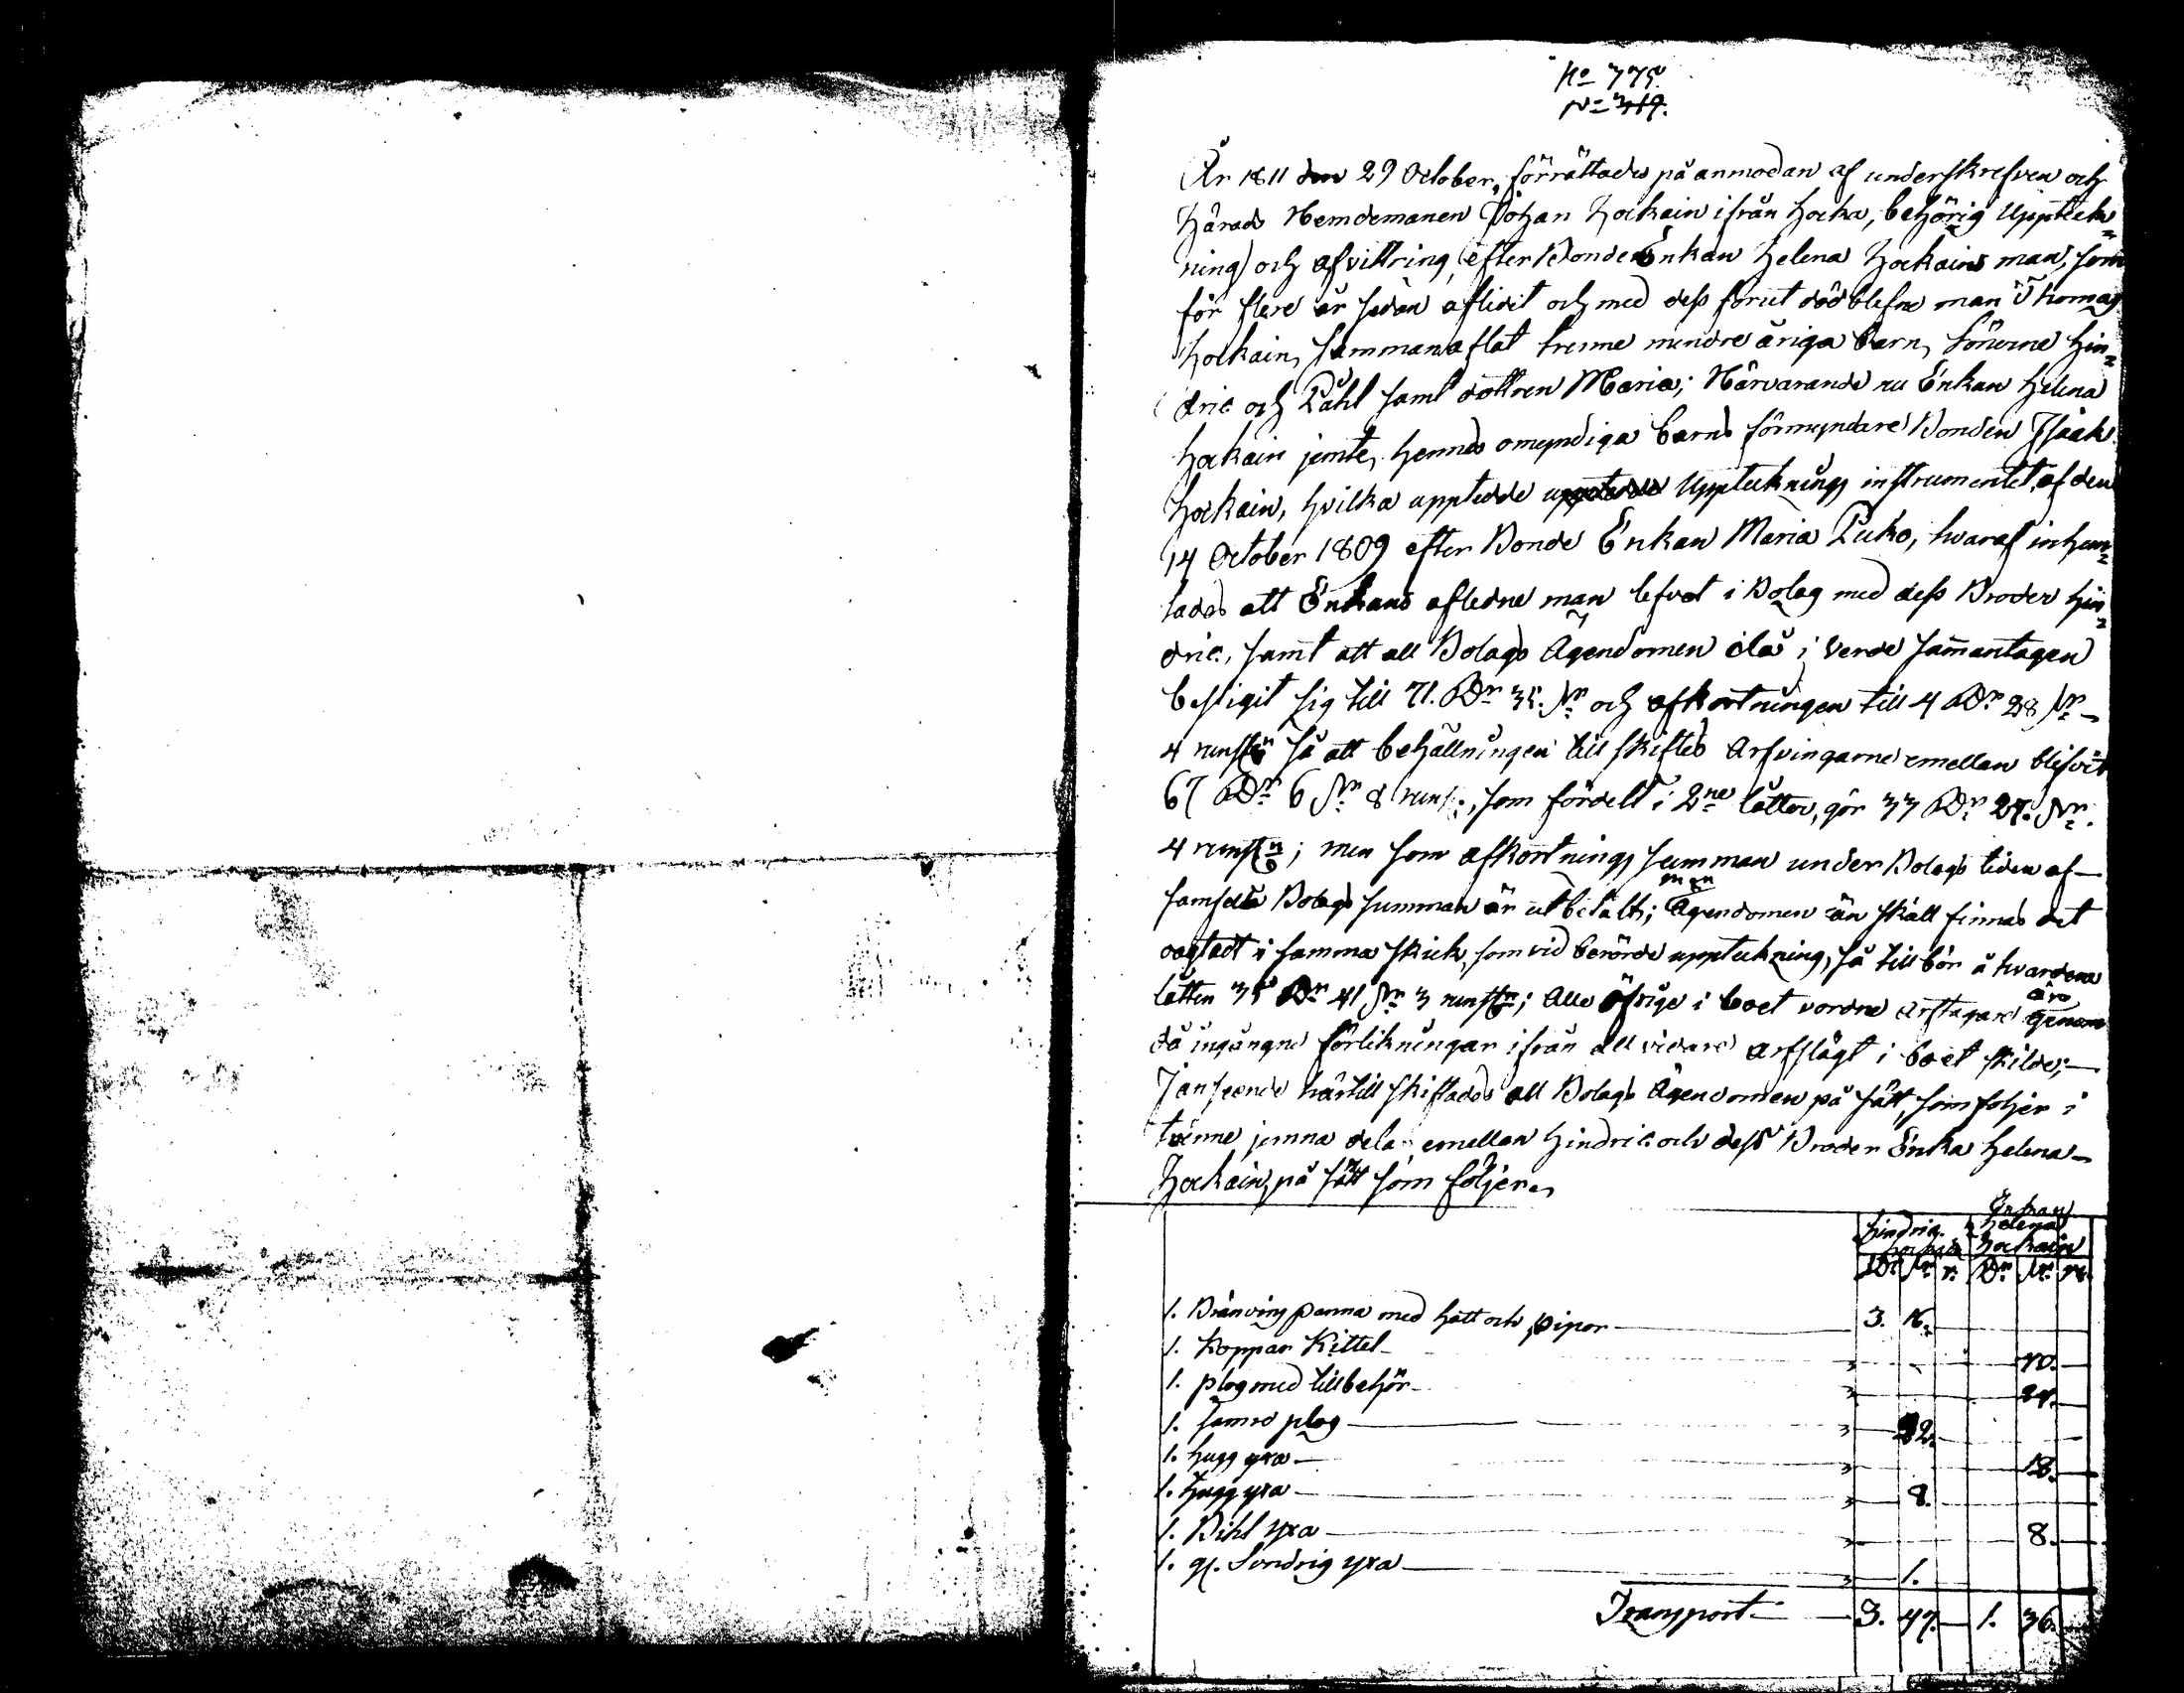 No 775.
No 319.
År 1811 den 29 October, förrättades på anmodan af underskrefven och
Härads Nemdemanen Johan Hockain ifrån Hocka, behörig Uppteck=
ning och afvittring, efter BondeEnkan Helena Hockains man, som
för flere år sedan aflidit och med dess förut dödblefne man Thomas
Hockain, sammanaflat trenne mindre åriga barn, Sönerne Hin=
dric och Påhl samt dottren Maria; Närvarande nu Enkan Helena
Hockain jemte, hennes omyndiga barns förmyndare Bonden Isaak
Hockain, hvilka upptedde upptedde Upptecknings instrumentet, af den
14 October 1809 efter Bonde Enkan Maria Puko, hvaraf inhem=
tades att Enkans afledne man lefvat i Bolag med dess Broder Hin=
dric, samt att all Bolags Ägendomen då i verde sammantagen
bestigit sig till 71. Rdr 35. sr och afkortningen till 4 Rdr 28 sr
4 runstn så att behållningen till skiftes Arfvingarne emellan blifvit
67 Rdr 6 sr 8 runst., som fördelt i 2ne lötter, gör 33 Rdr 27. sr.
4 runstn; men som afkortnings summan under Bolags tiden af
samfälta Bolags summan är utbetalt; men Ägendomen än skall finnas det
oagtadt i samma skick, som vid berörde uppteckning, så tillbör å hvardera
lotten 35 Rdr 41 sr 3 runstn; Alle öfrige i boet vordne arftagare äro genom
då ingångne förlikningar ifrån all vidare arfslågt i boet skilde;
I anseende härtill skiftades all Bolags Ägendomen på sätt, som följer i
tvenne jemna delar emellan Hindric och dess Broder Enka Helena
Hockain, på sätt som följer.
Hindrig Hockain Enkan Helena Hockain
Rdr sr r. Rdr sr r.
1. Bränvins panna med hatt och pipor 3. 16.
1. Koppar Kittel 10.
1. plog med tillbehör 24.
1. Samma plog 22.
1. hugg yxa 18.
1. hugg yxa 8.
1. Bihl yxa 8.
1. gl. Sondrig yxa 1.
Transport 3. 47. 1. 36.